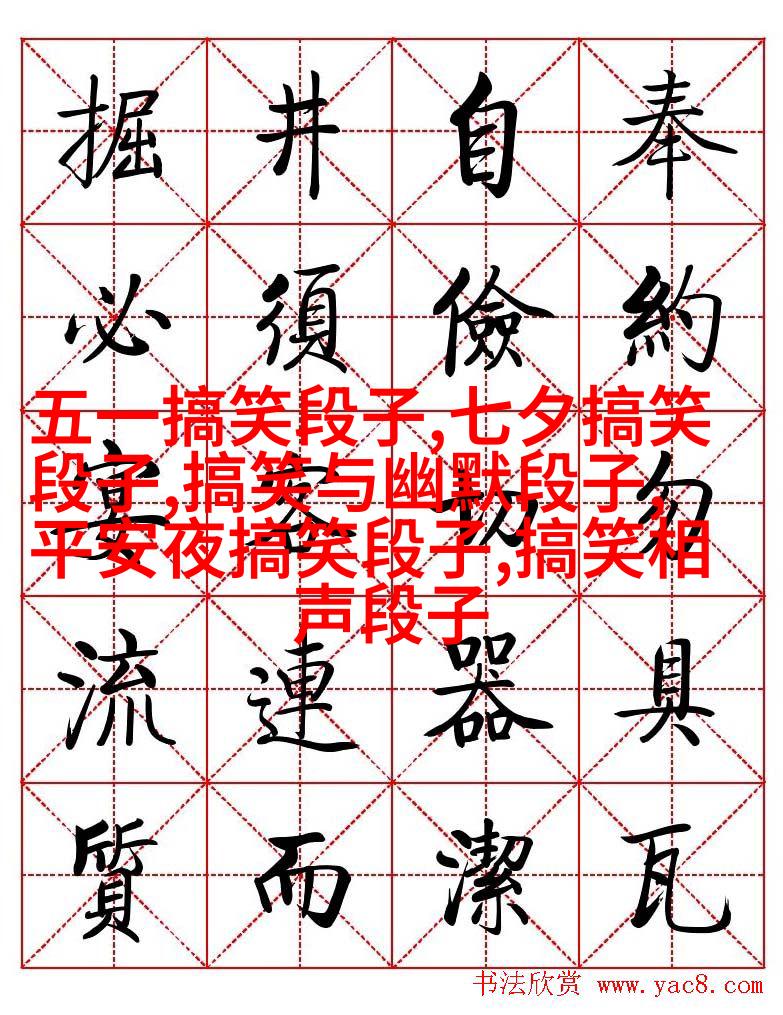 掘井自奉
必須儉約
宴客切勿
流連器具
質而潔瓦
五一搞笑段子,七夕搞笑
段子,搞笑与幽默段子,
平安夜搞笑段子,搞笑相
声段子
书法欣赏 www.yac8.com